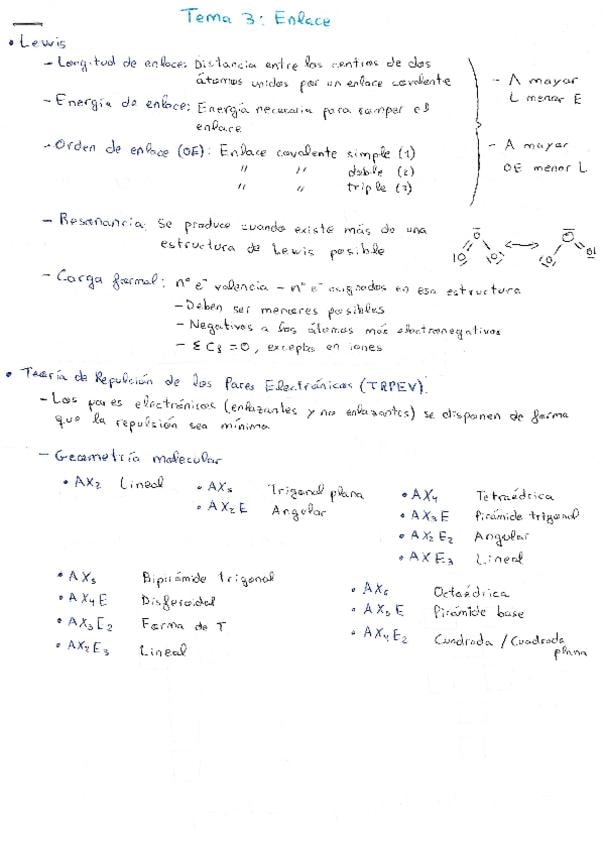 Tema 3: Enlace
• Lewis
- Longitud de enlace: Distancia entre los centros de dos
átomos unidos por un enlace covalente
- Energía de enlace: Energía necesaria para romper el
enlace
- Orden de enlace (OE): Enlace covalente simple (1)
" " doble (2)
" " triple (3)
- A mayor
L menor E
- A mayor
OE menor L
- Resonancia: Se produce cuando existe más de una
estructura de Lewis posible
- Carga formal: nº e⁻ valencia - nº e⁻ asignados en esa estructura
- Deben ser menores posibles
- Negativos a los átomos más electronegativos
- Σ Cf = 0, excepto en iones
• Teoría de Repulsión de los Pares Electrónicos (TRPEV).
- Los pares electrónicos (enlazantes y no enlazantes) se disponen de forma
que la repulsión sea mínima
- Geometría molecular
• AX2 Lineal
• AX3 Trigonal plana
• AX2E Angular
• AX4 Tetraédrica
• AX3E Pirámide trigonal
• AX2E2 Angular
• AXE3 Lineal
• AX5 Bipirámide trigonal
• AX4E Disfenoidal
• AX3E2 Forma de T
• AX2E3 Lineal
• AX6 Octaédrica
• AX5E Pirámide base
• AX4E2 Cuadrada / Cuadrada
plana